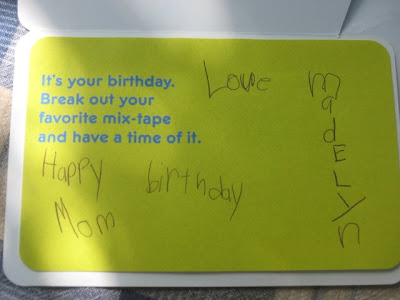 It's your birthday.
Break out your
favorite mix-tape
and have a time of it.
Love madELyn
Happy birthday
Mom